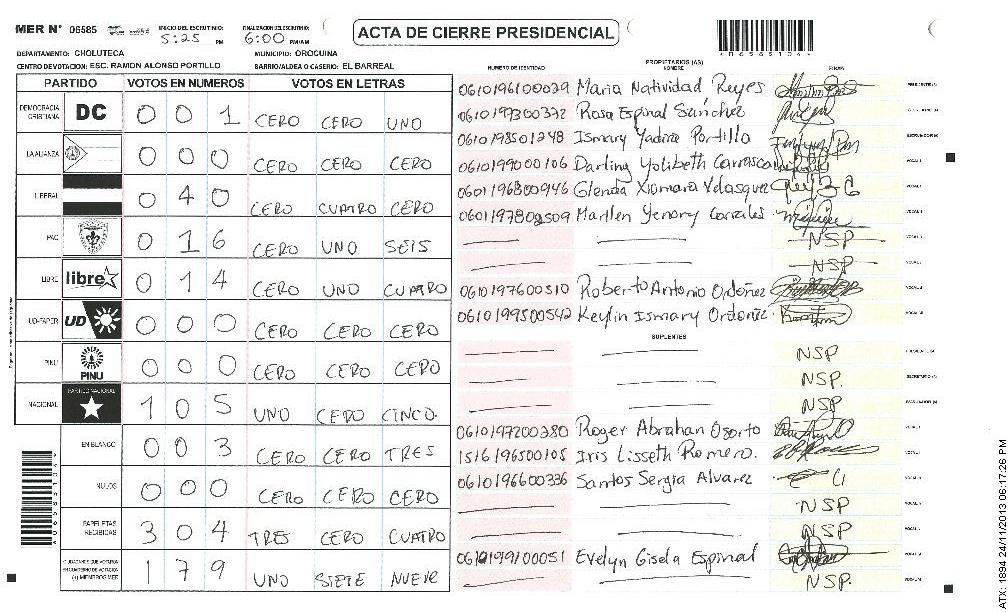 MER N° 06585 INICIO DEL ESCRUTINIO: 5:25 PM FINALIZACION DEL ESCRUTINIO: 6:00 PM/AM
ACTA DE CIERRE PRESIDENCIAL
DEPARTAMENTO: CHOLUTECA MUNICIPIO: OROCUINA
CENTRO DE VOTACION: ESC. RAMON ALONSO PORTILLO BARRIO/ALDEA O CASERIO: EL BARREAL
PARTIDO VOTOS EN NUMEROS VOTOS EN LETRAS
DEMOCRACIA CRISTIANA DC 0 0 1 CERO CERO UNO
LA ALIANZA 0 0 0 CERO CERO CERO
LIBERAL 0 4 0 CERO CUATRO CERO
PAC 0 1 6 CERO UNO SEIS
LIBRE libre 0 1 4 CERO UNO CUATRO
UD-FAPER UD 0 0 0 CERO CERO CERO
PINU PINU 0 0 0 CERO CERO CERO
NACIONAL PARTIDO NACIONAL 1 0 5 UNO CERO CINCO.
EN BLANCO 0 0 3 CERO CERO TRES
NULOS 0 0 0 CERO CERO CERO
PAPELETAS RECIBIDAS 3 0 4 TRES CERO CUATRO
CIUDADANOS QUE VOTARON EN CUADERNO DE VOTACION (+) MIEMBROS MER 1 7 9 UNO SIETE NUEVE
PROPIETARIOS (AS)
NUMERO DE IDENTIDAD NOMBRE FIRMA
0610196100029 Maria Natividad Reyes
0610197300372 Rosa Espinal Sánchez
0610198501248 Ismary Yadira Portillo
0610199000106 Darling Yolibeth Carrasco
0601196800946 Glenda Xiomara Velasquez
0601197802509 Marllen Yenory Gonzales
NSP
NSP
0610197600510 Roberto Antonio Ordoñez
0610199500542 Keylin Ismary Ordoñez
SUPLENTES
NSP
NSP.
NSP
0610197200280 Roger Abrahan Osorto
1516196500105 Iris Lisseth Romero.
0610196600336 Santos Sergia Alvarez
NSP
NSP
0610199100051 Evelyn Gisela Espinal
NSP.
ATX: 1894 24/11/2013 06:17:26 PM